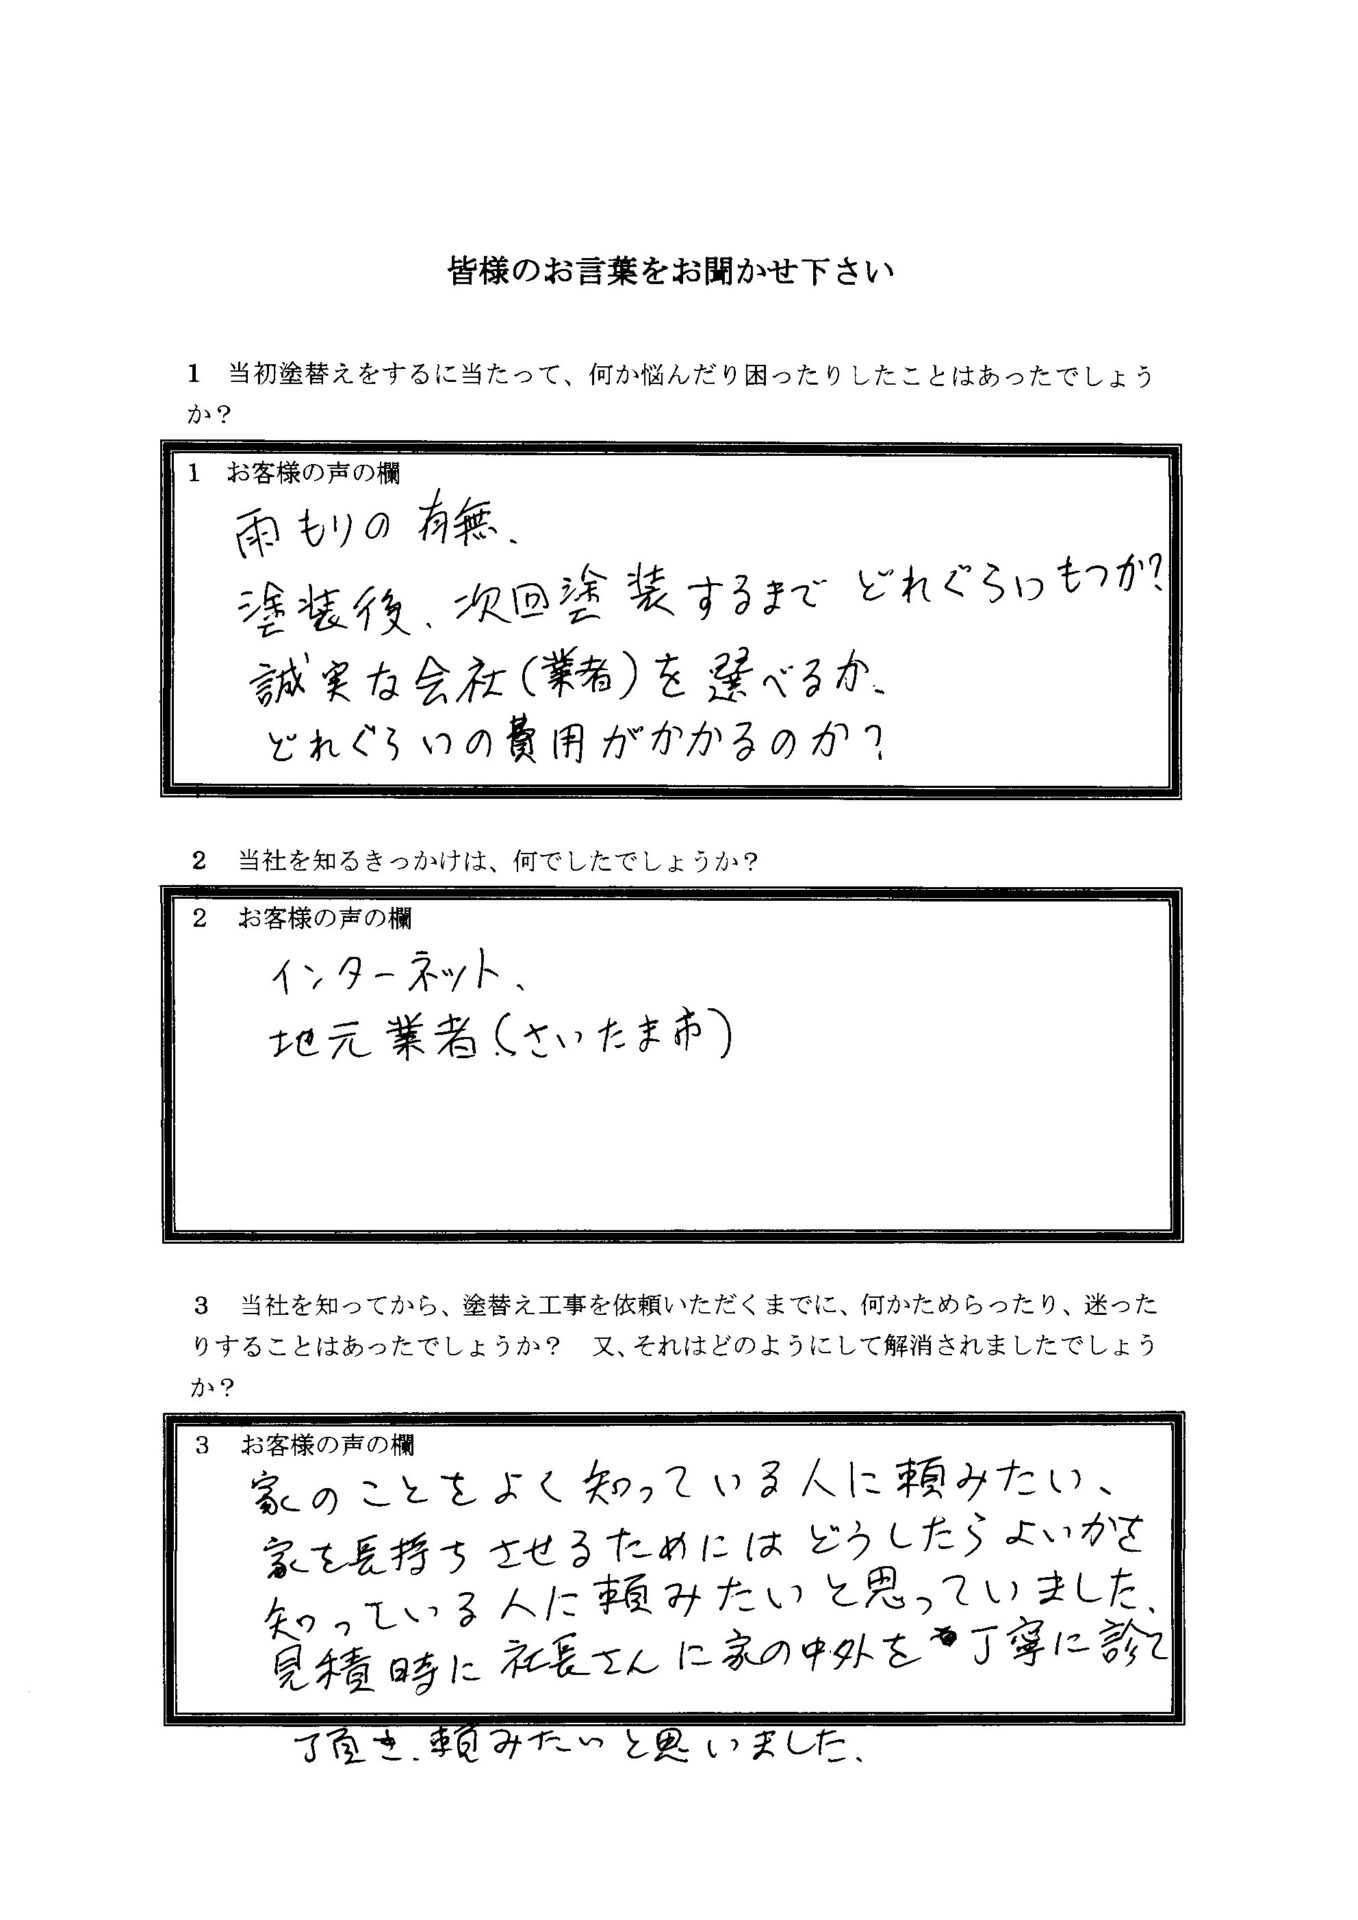 皆様のお言葉をお聞かせ下さい
1　当初塗替えをするに当たって、何か悩んだり困ったりしたことはあったでしょう
か？
1　お客様の声の欄
雨もりの有無、
塗装後、次回塗装するまでどれぐらいもつか？
誠実な会社（業者）を選べるか、
どれぐらいの費用がかかるのか？
2　当社を知るきっかけは、何でしたでしょうか？
2　お客様の声の欄
インターネット、
地元業者（さいたま市）
3　当社を知ってから、塗替え工事を依頼いただくまでに、何かためらったり、迷った
りすることはあったでしょうか？　又、それはどのようにして解消されましたでしょう
か？
3　お客様の声の欄
家のことをよく知っている人に頼みたい、
家を長持ちさせるためにはどうしたらよいかを
知っている人に頼みたいと思っていました。
見積時に社長さんに家の中外を丁寧に診て
頂き、頼みたいと思いました。